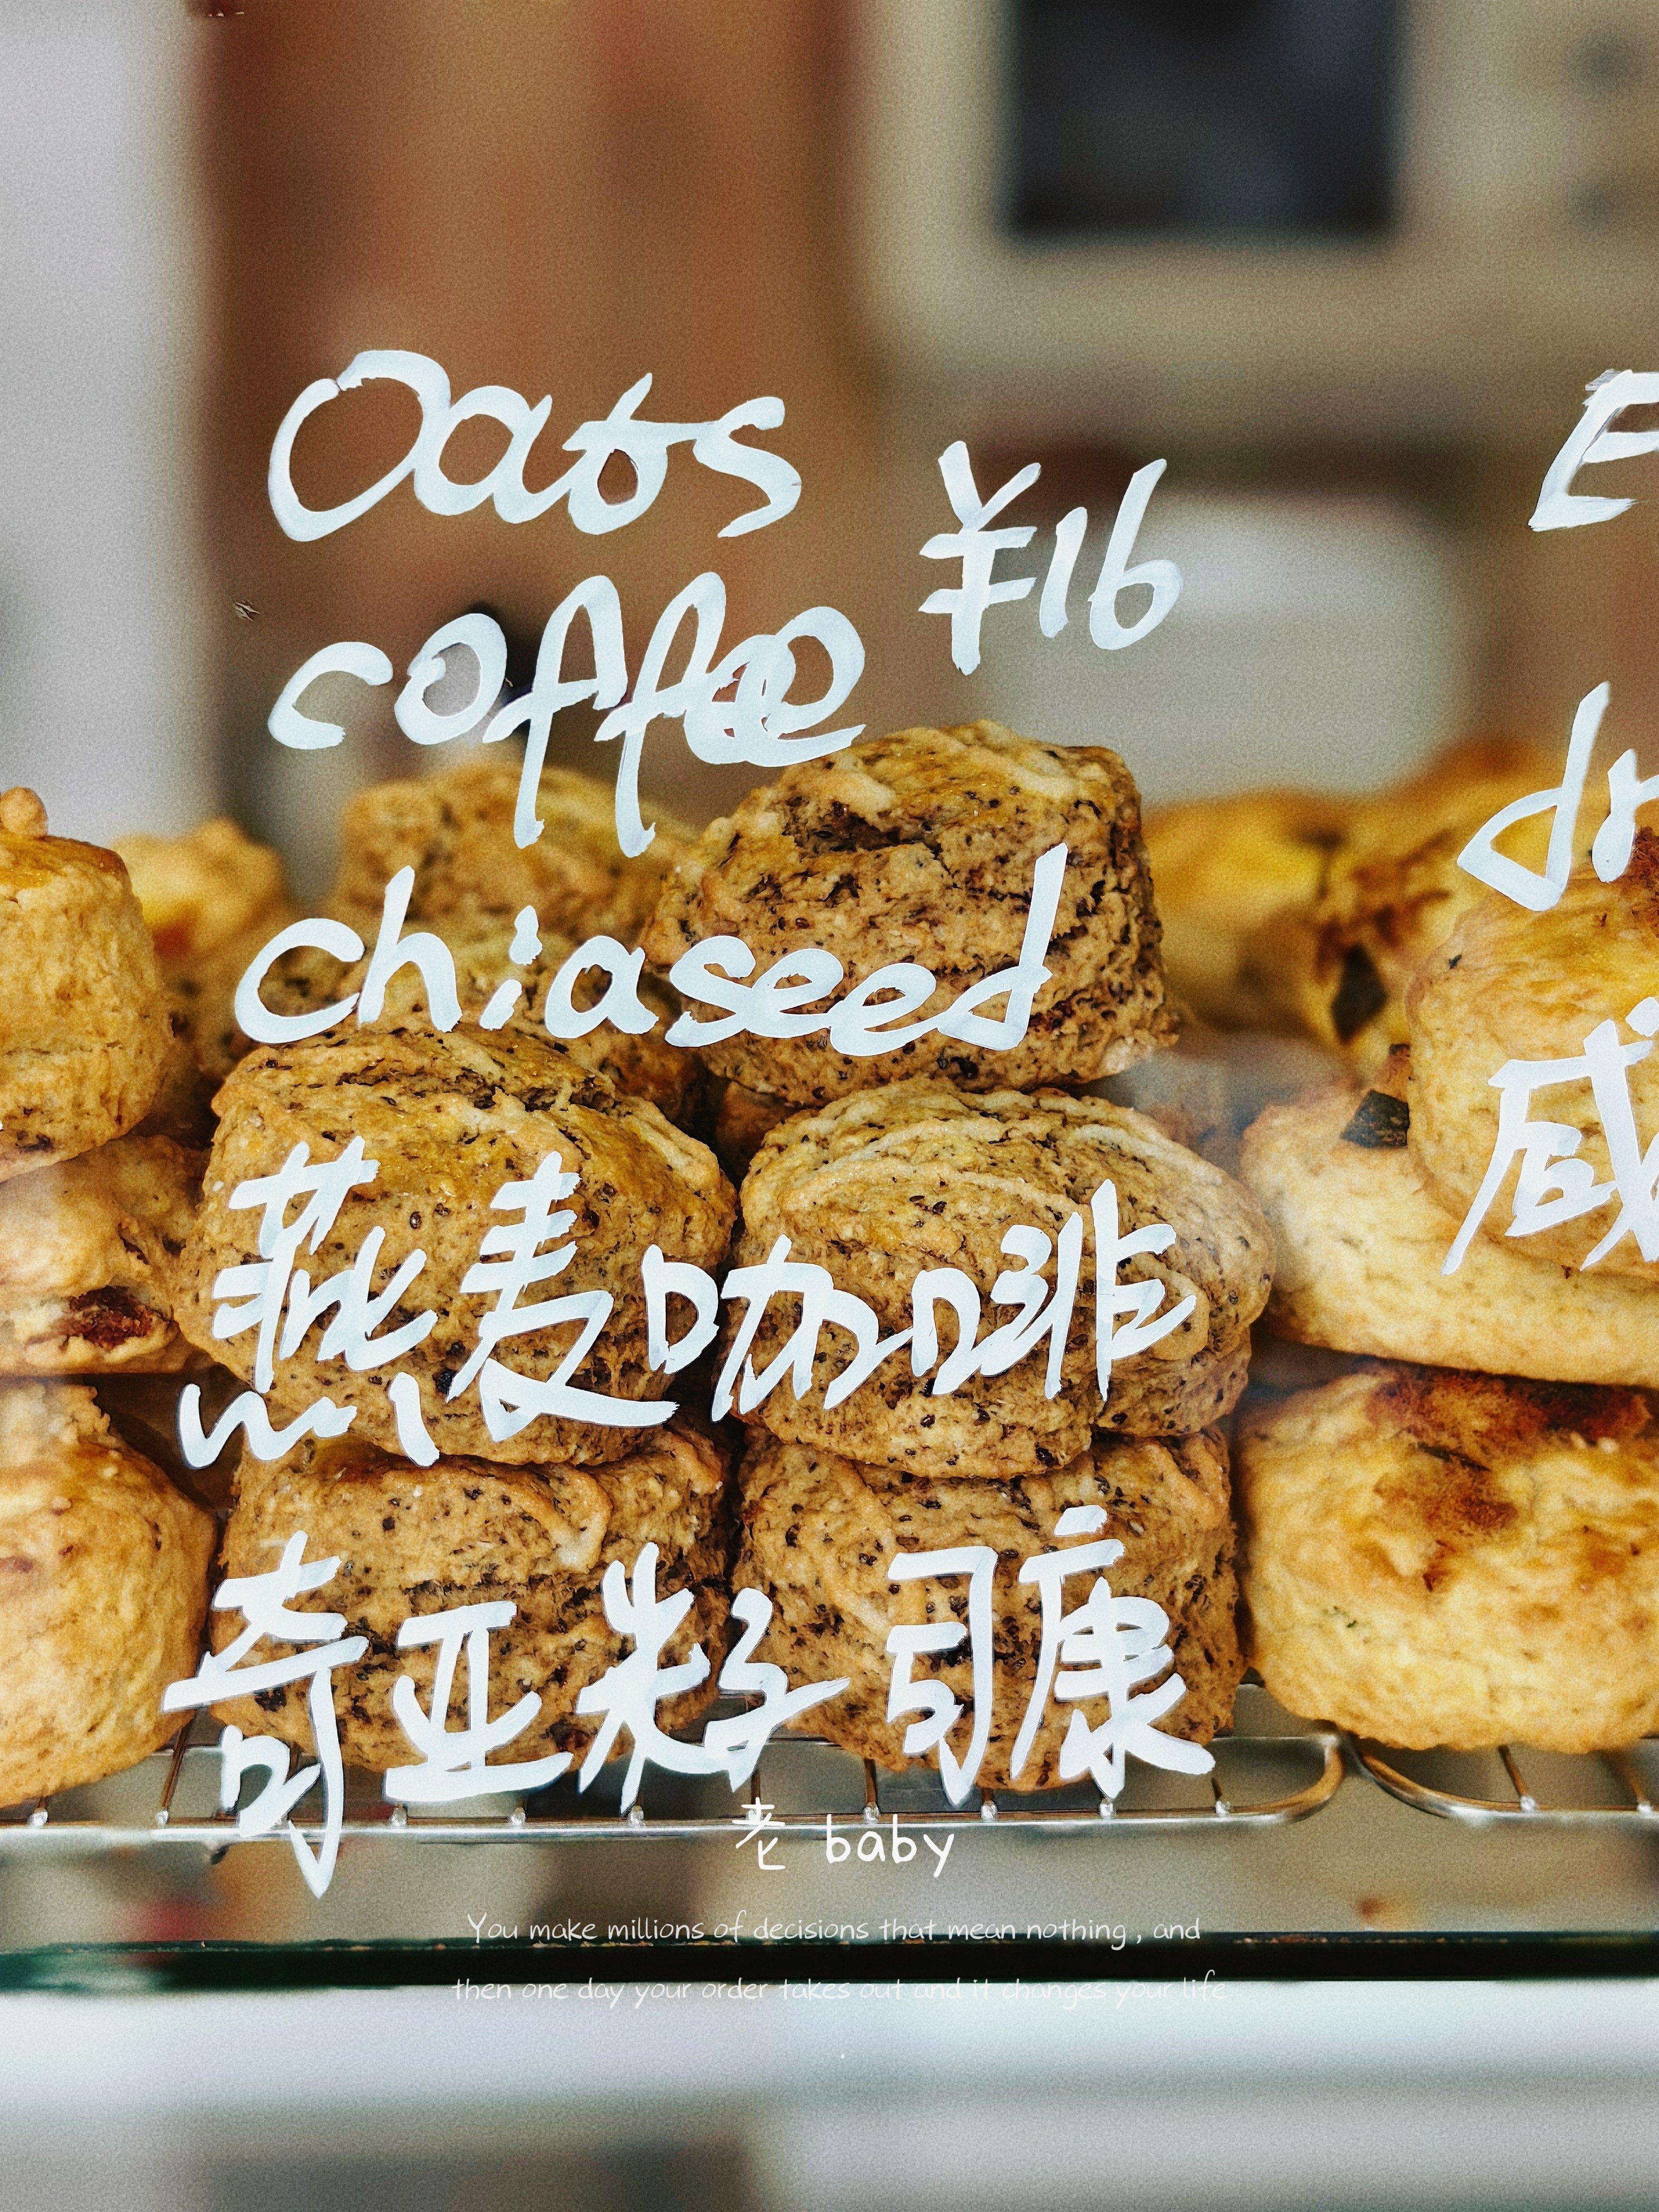 Oats
¥16
coffee
chiaseed
燕麦咖啡
奇亚籽司康
E
dr
咸
老 baby
You make millions of decisions that mean nothing , and
then one day your order takes out and it changes your life